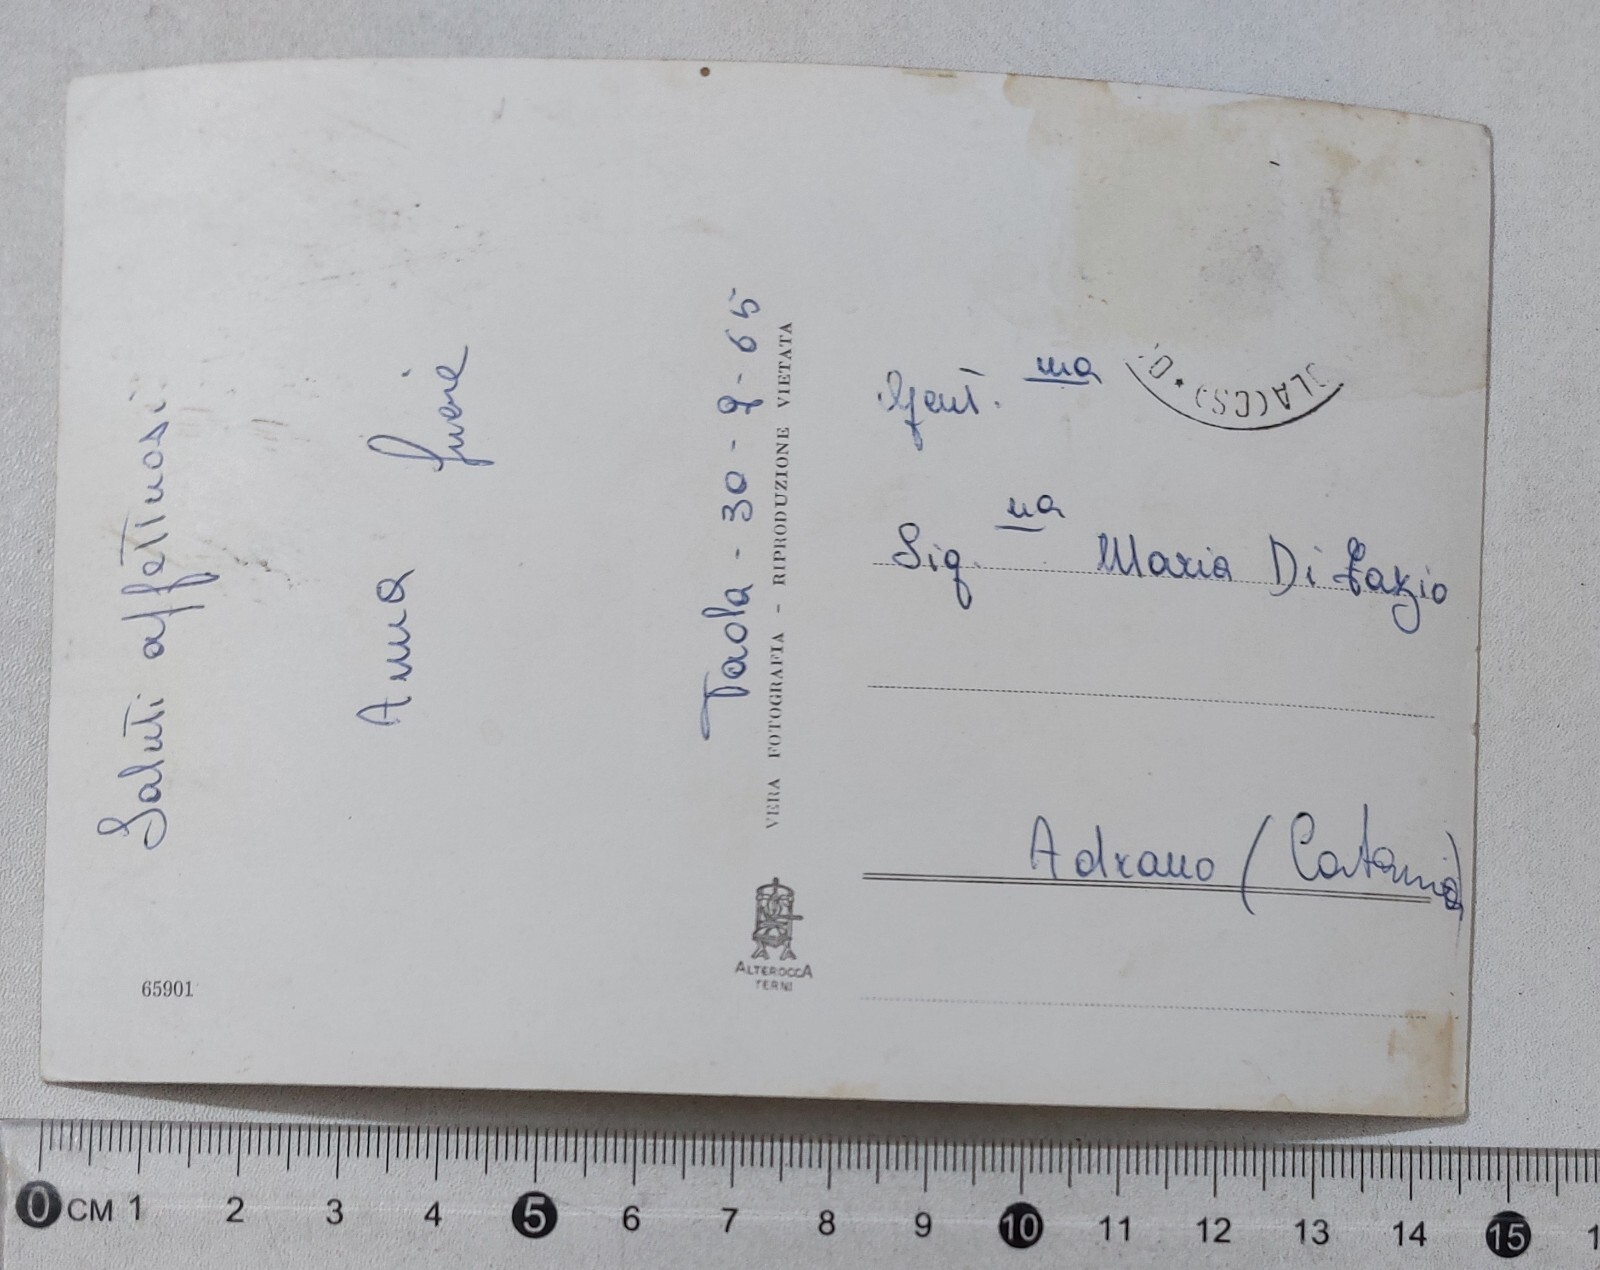 Saluti affettuosi
Anna
Paola - 30-9-65
VERA FOTOGRAFIA - RIPRODUZIONE VIETATA
ALTEROCCA
TERNI
65901
Gent. ma
Sig. na Maria Di Fazio
Adrano (Catania)
OLA (CS) *
0 CM 1 2 3 4 5 6 7 8 9 10 11 12 13 14 15